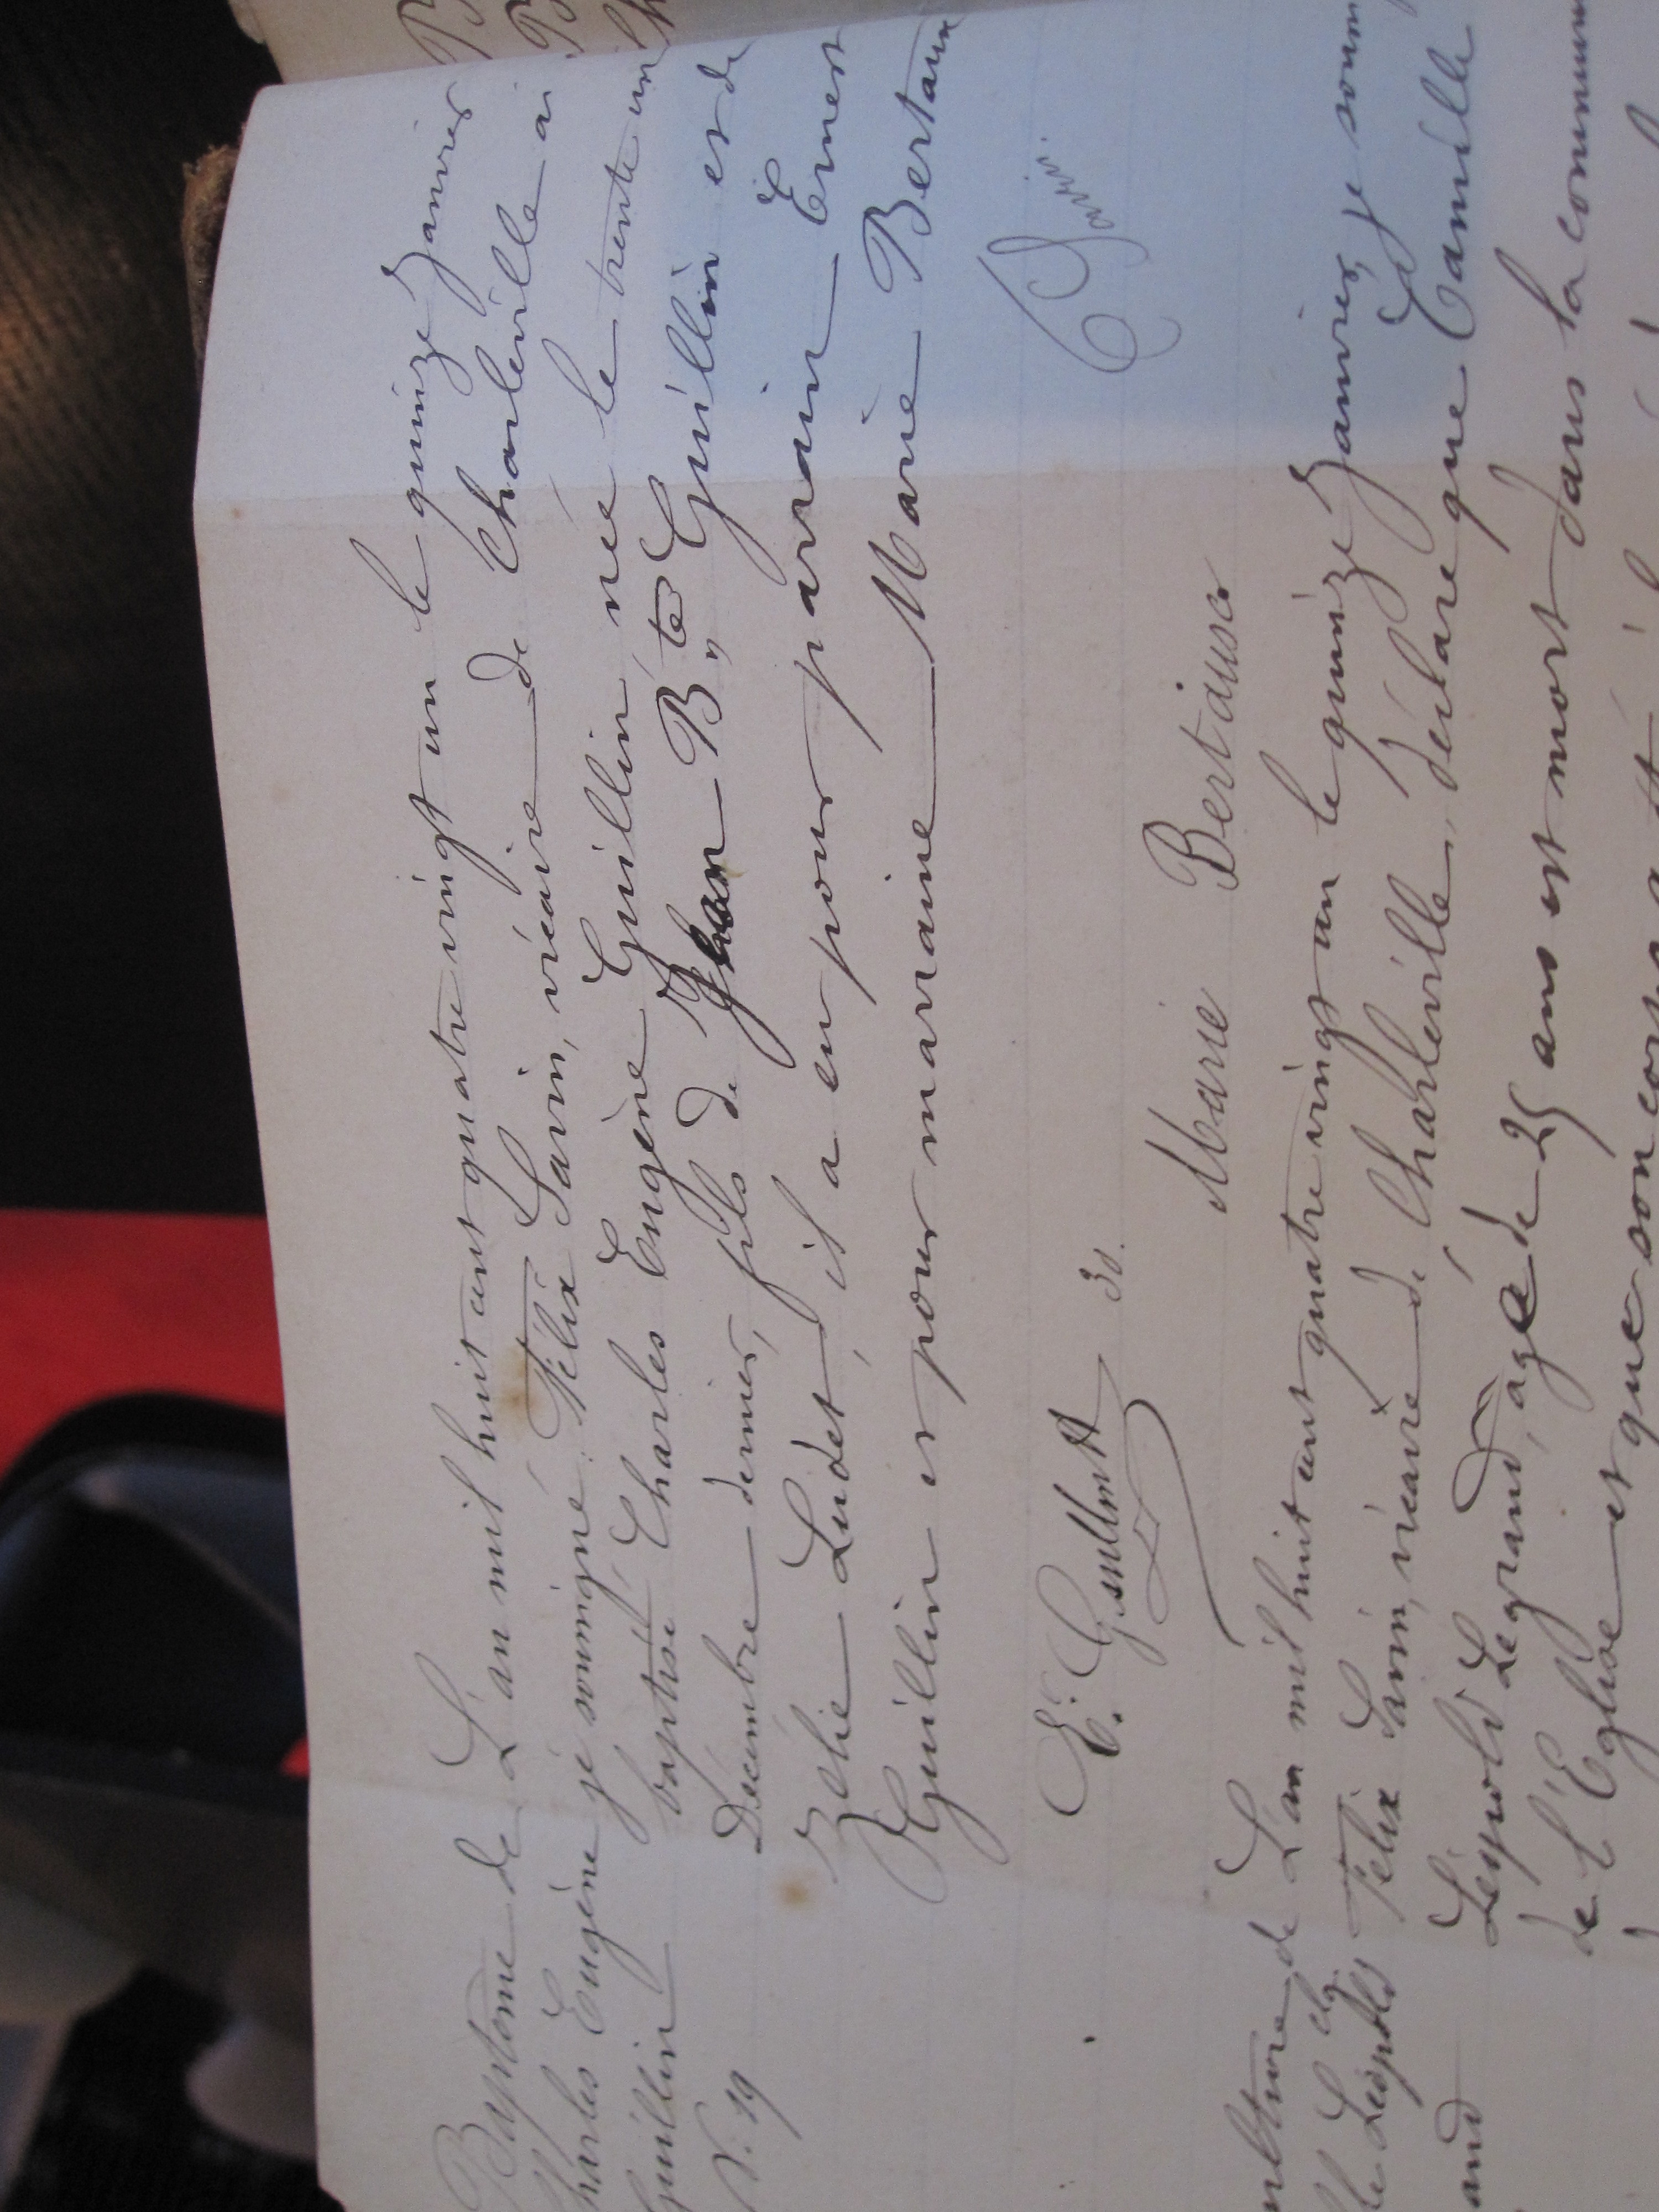 Baptême de
Charles Eugène
Guillin
N. 19
L'an mil huit cent quatre vingt un le quinze Janvier
je soussigné Félix Savin, vicaire de Charleville ai
baptisé Charles Eugène Guillin né le trente un
Décembre dernier, fils de Jean B,,te Guillin et de
Zélie Ludet, il a eu pour parrain Ernest
Guillin et pour marraine Marie Bertaux
E. Guillin
Marie Bertaux
Savin
de
Léopold
L'an mil huit cent quatre vingt un le quinze Janvier, je soussi
Félix Savin, vicaire de Charleville, déclare que Camille
Léopold Legrand, agé de 25 ans est mort dans la commun
de l'Eglise et que son corps a été